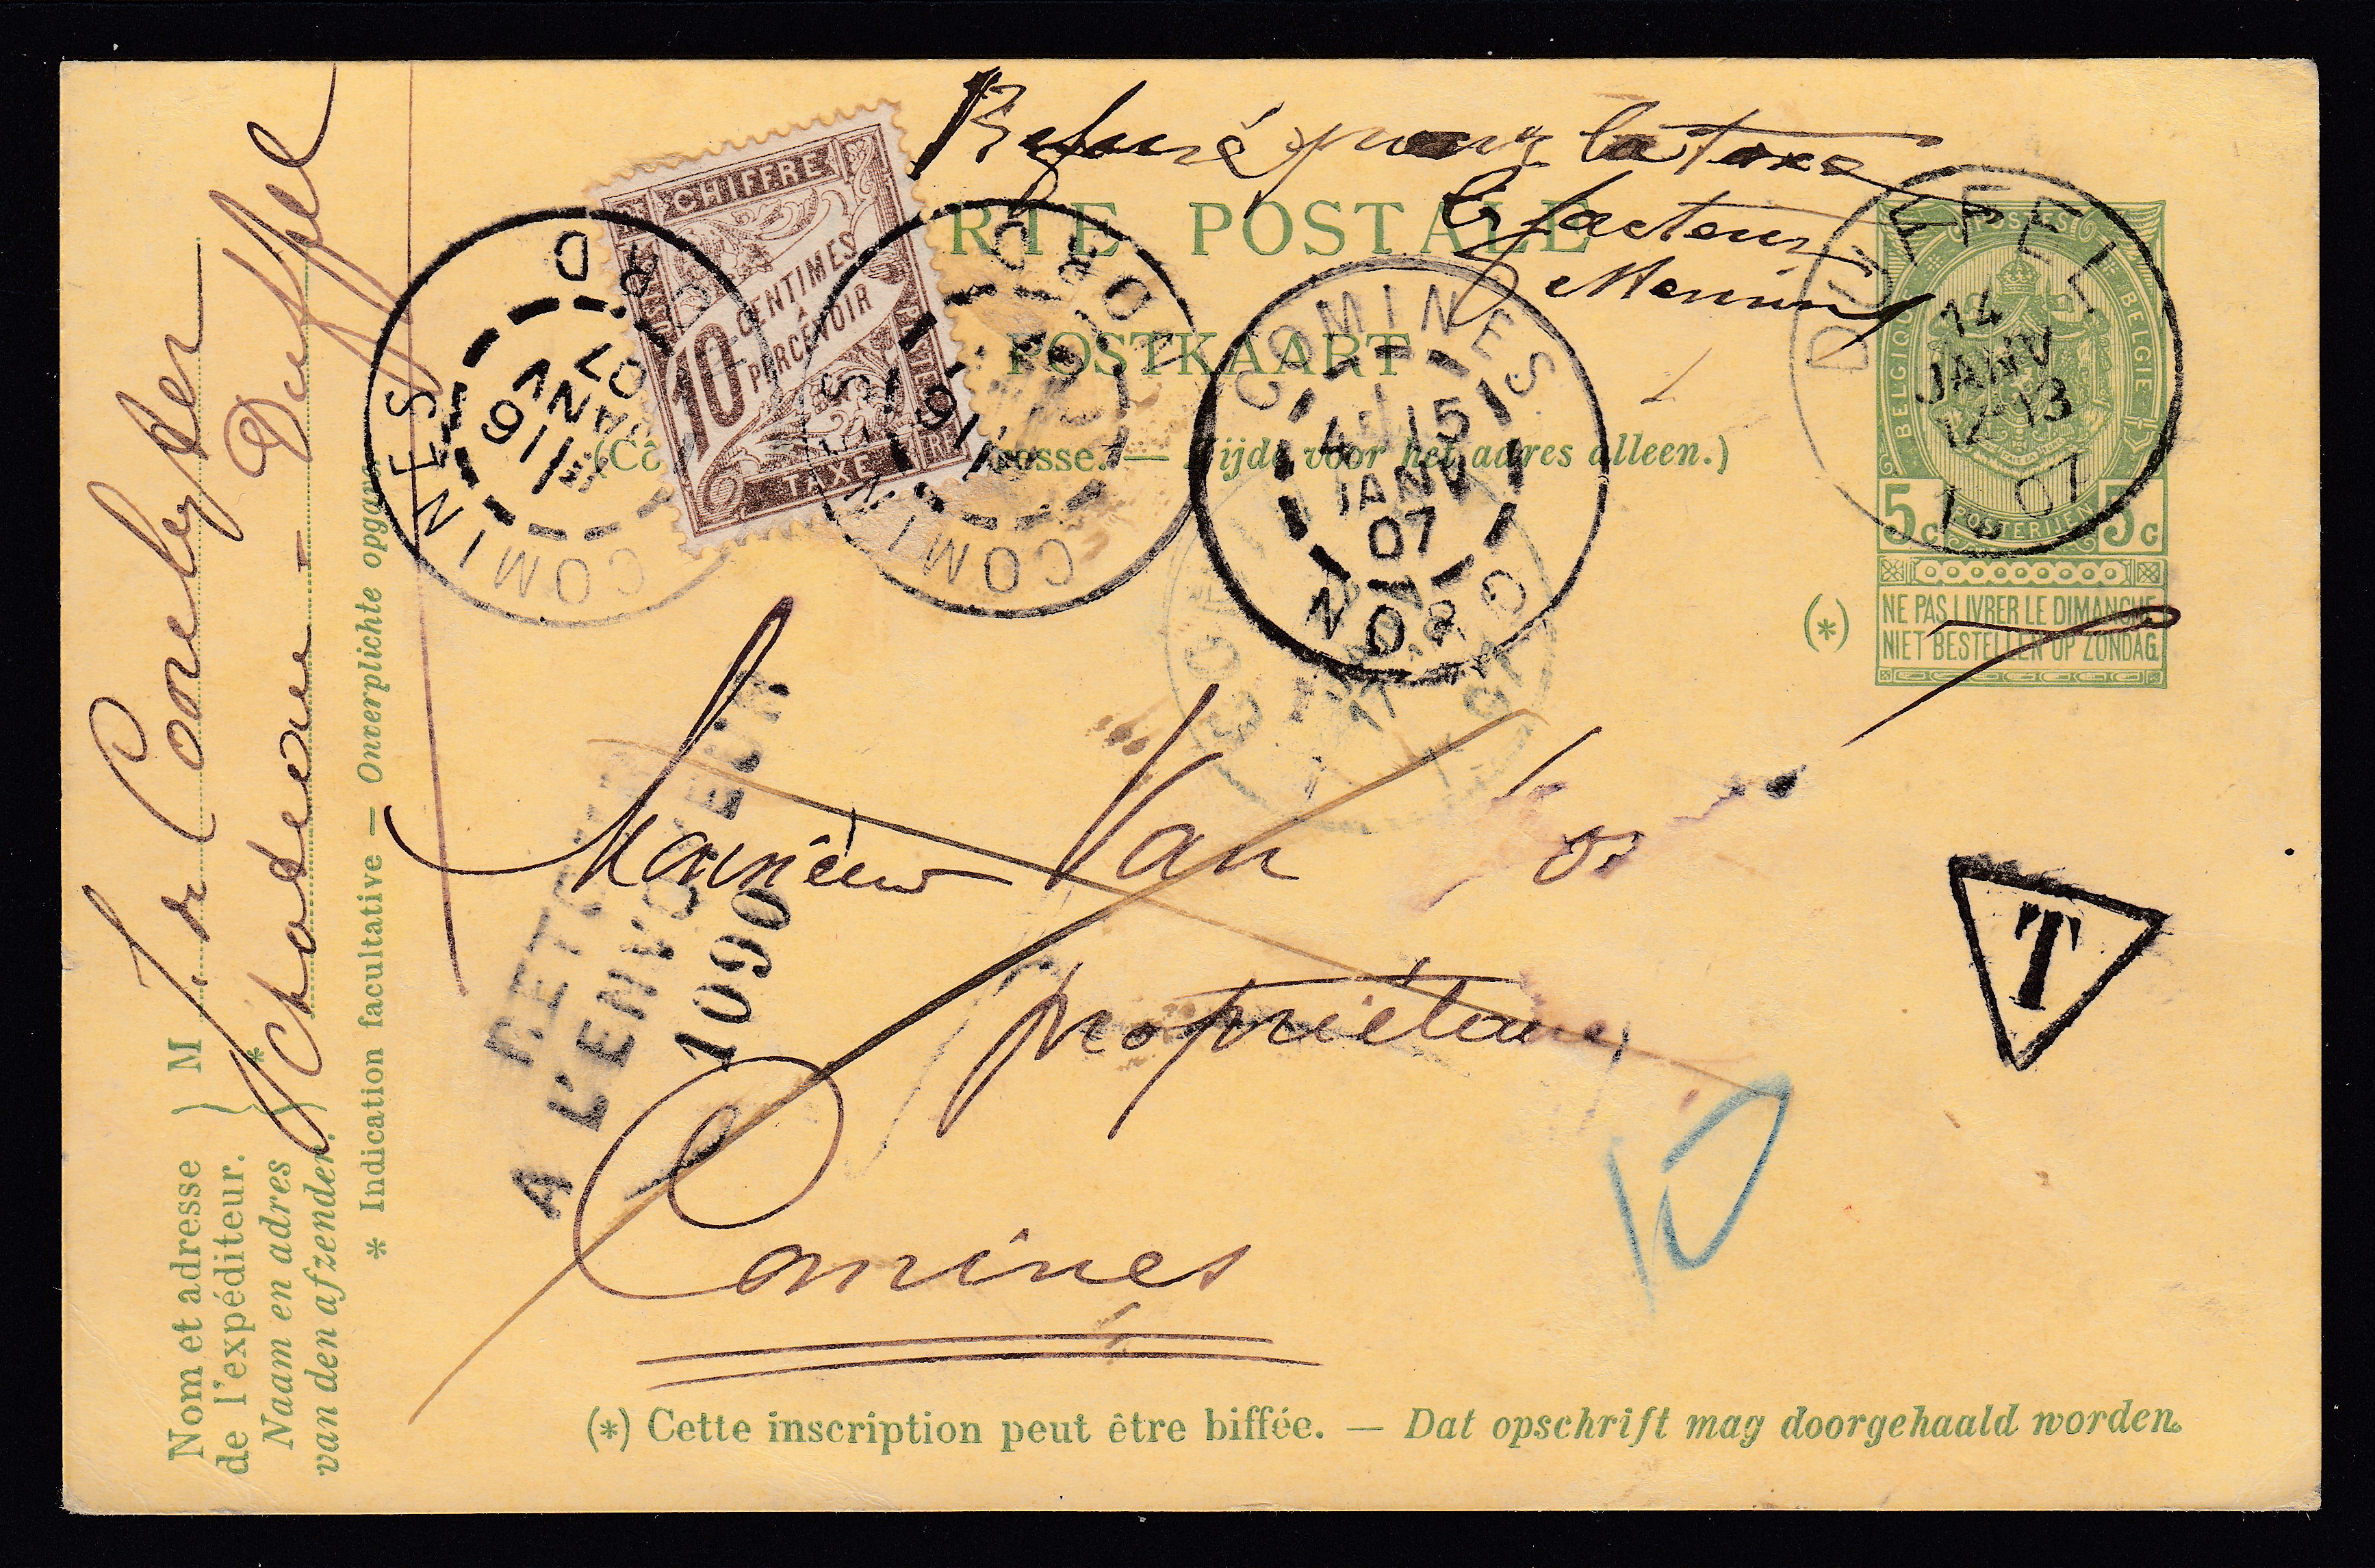 Refusé pour la taxe
le facteur
RTE POSTALE
POSTKAART
CHIFFRE
10 CENTIMES
À PERCEVOIR
TAXE
COMINES
1/16
JANV
07
NORD
COMINES
16
NORD
COMINES
4E/15
JANV
07
NORD
DUFFEL
14
JANV
12-13
1907
POSTES
BELGIQUE
BELGIE
POSTERIJEN
5c 5c
resse. — Zijde voor het adres alleen.)
(*)
NE PAS LIVRER LE DIMANCHE
NIET BESTELLEN OP ZONDAG.
Monsieur Van
propriétaire
Comines
RETOUR
A L'ENVOYEUR
1090
T
10
Nom et adresse
de l'expéditeur.
Naam en adres
van den afzender.
M
Duffel
* Indication facultative — Onverplichte opgave.
(*) Cette inscription peut être biffée. — Dat opschrift mag doorgehaald worden.